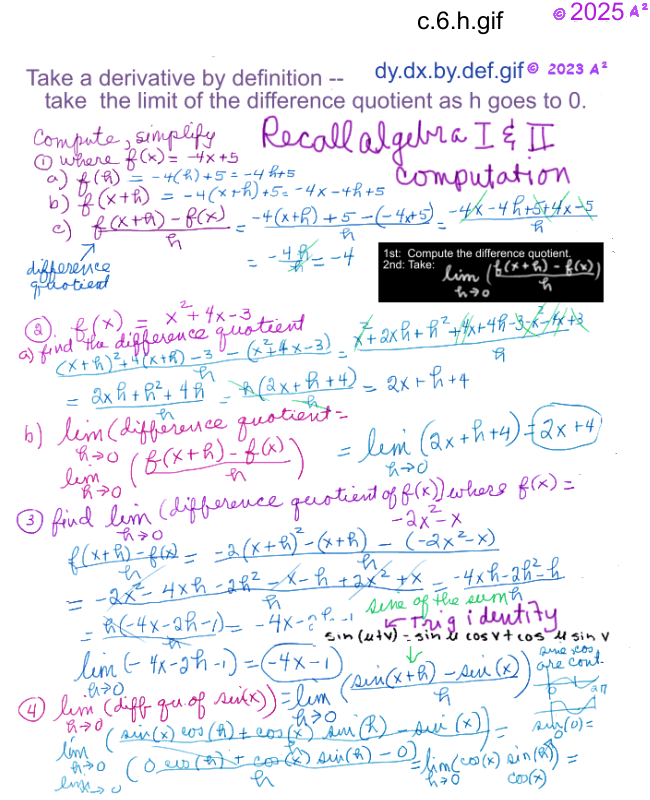 c.6.h.gif
© 2025 A²
Take a derivative by definition -- dy.dx.by.def.gif © 2023 A²
take the limit of the difference quotient as h goes to 0.
Compute, simplify
Recall algebra I & II
computation
① where f(x) = -4x+5
a) f(h) = -4(h)+5 = -4h+5
b) f(x+h) = -4(x+h)+5 = -4x-4h+5
c) f(x+h) - f(x) / h = -4(x+h)+5-(-4x+5) / h = -4x-4h+5+4x-5 / h
= -4h / h = -4
difference quotient
1st: Compute the difference quotient.
2nd: Take: lim h→0 (f(x+h) - f(x) / h)
② f(x) = x²+4x-3
a) find the difference quotient
(x+h)²+4(x+h)-3 - (x²+4x-3) / h = x²+2xh+h²+4x+4h-3-x²-4x+3 / h
= 2xh+h²+4h / h = h(2x+h+4) / h = 2x+h+4
b) lim h→0 (difference quotient =
lim h→0 (f(x+h) - f(x) / h) = lim h→0 (2x+h+4) = 2x+4
③ find lim h→0 (difference quotient of f(x)) where f(x) = -2x²-x
f(x+h)-f(x) / h = -2(x+h)²-(x+h) - (-2x²-x) / h
= -2x²-4xh-2h²-x-h+2x²+x / h = -4xh-2h²-h / h
= h(-4x-2h-1) / h = -4x-
sine of the sum
← Trig identity
sin(u+v) = sin u cos v + cos u sin v
lim h→0 (-4x-2h-1) = -4x-1
④ lim h→0 (diff qu. of sin(x)) = lim h→0 (sin(x+h) - sin(x) / h)
sine cos are cont.
2π
lim h→0 (sin(x) cos(h) + cos(x) sin(h) - sin(x)) / h =
sin(0) = 0
lim h→0 (0 cos(h) + cos(x) sin(h) - 0) / h = lim h→0 (cos(x) sin(h)) =
cos(x)